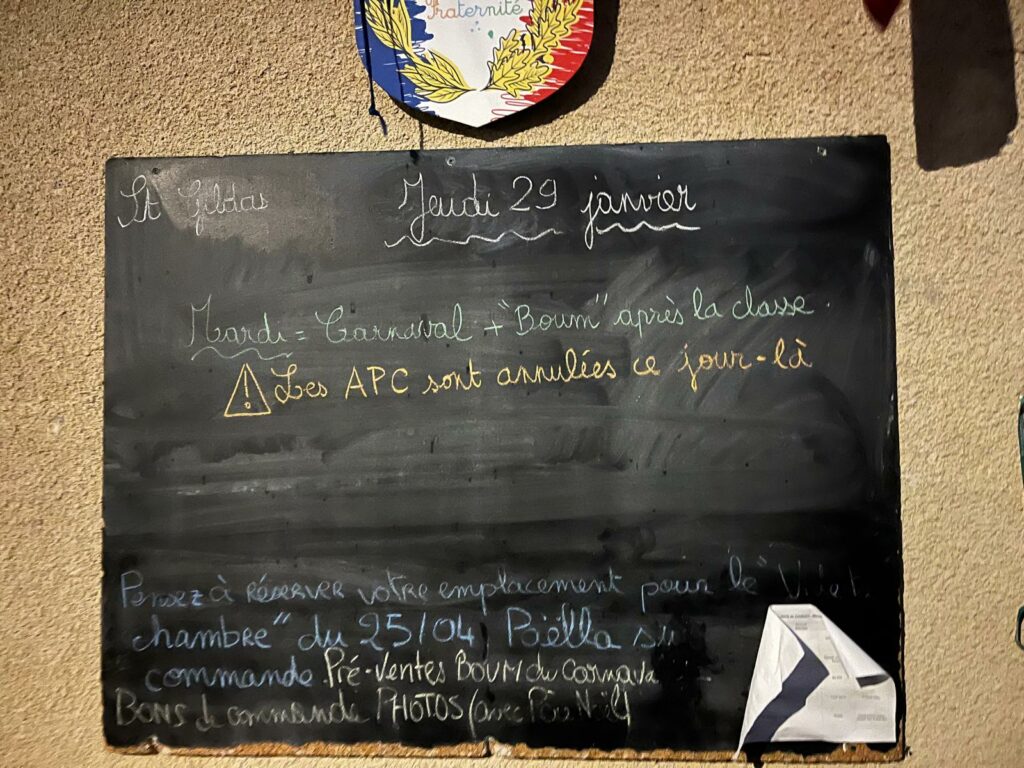 Fraternité
St Gildas
Jeudi 29 janvier
Mardi = Carnaval + "Boum" après la classe.
Les APC sont annulées ce jour-là
Pensez à réserver votre emplacement pour le "
chambre" du 25/04 Paëlla
commande Pré-Ventes BOUM du Carnava
BONS de commande PHOTOS (avec Père Noël)